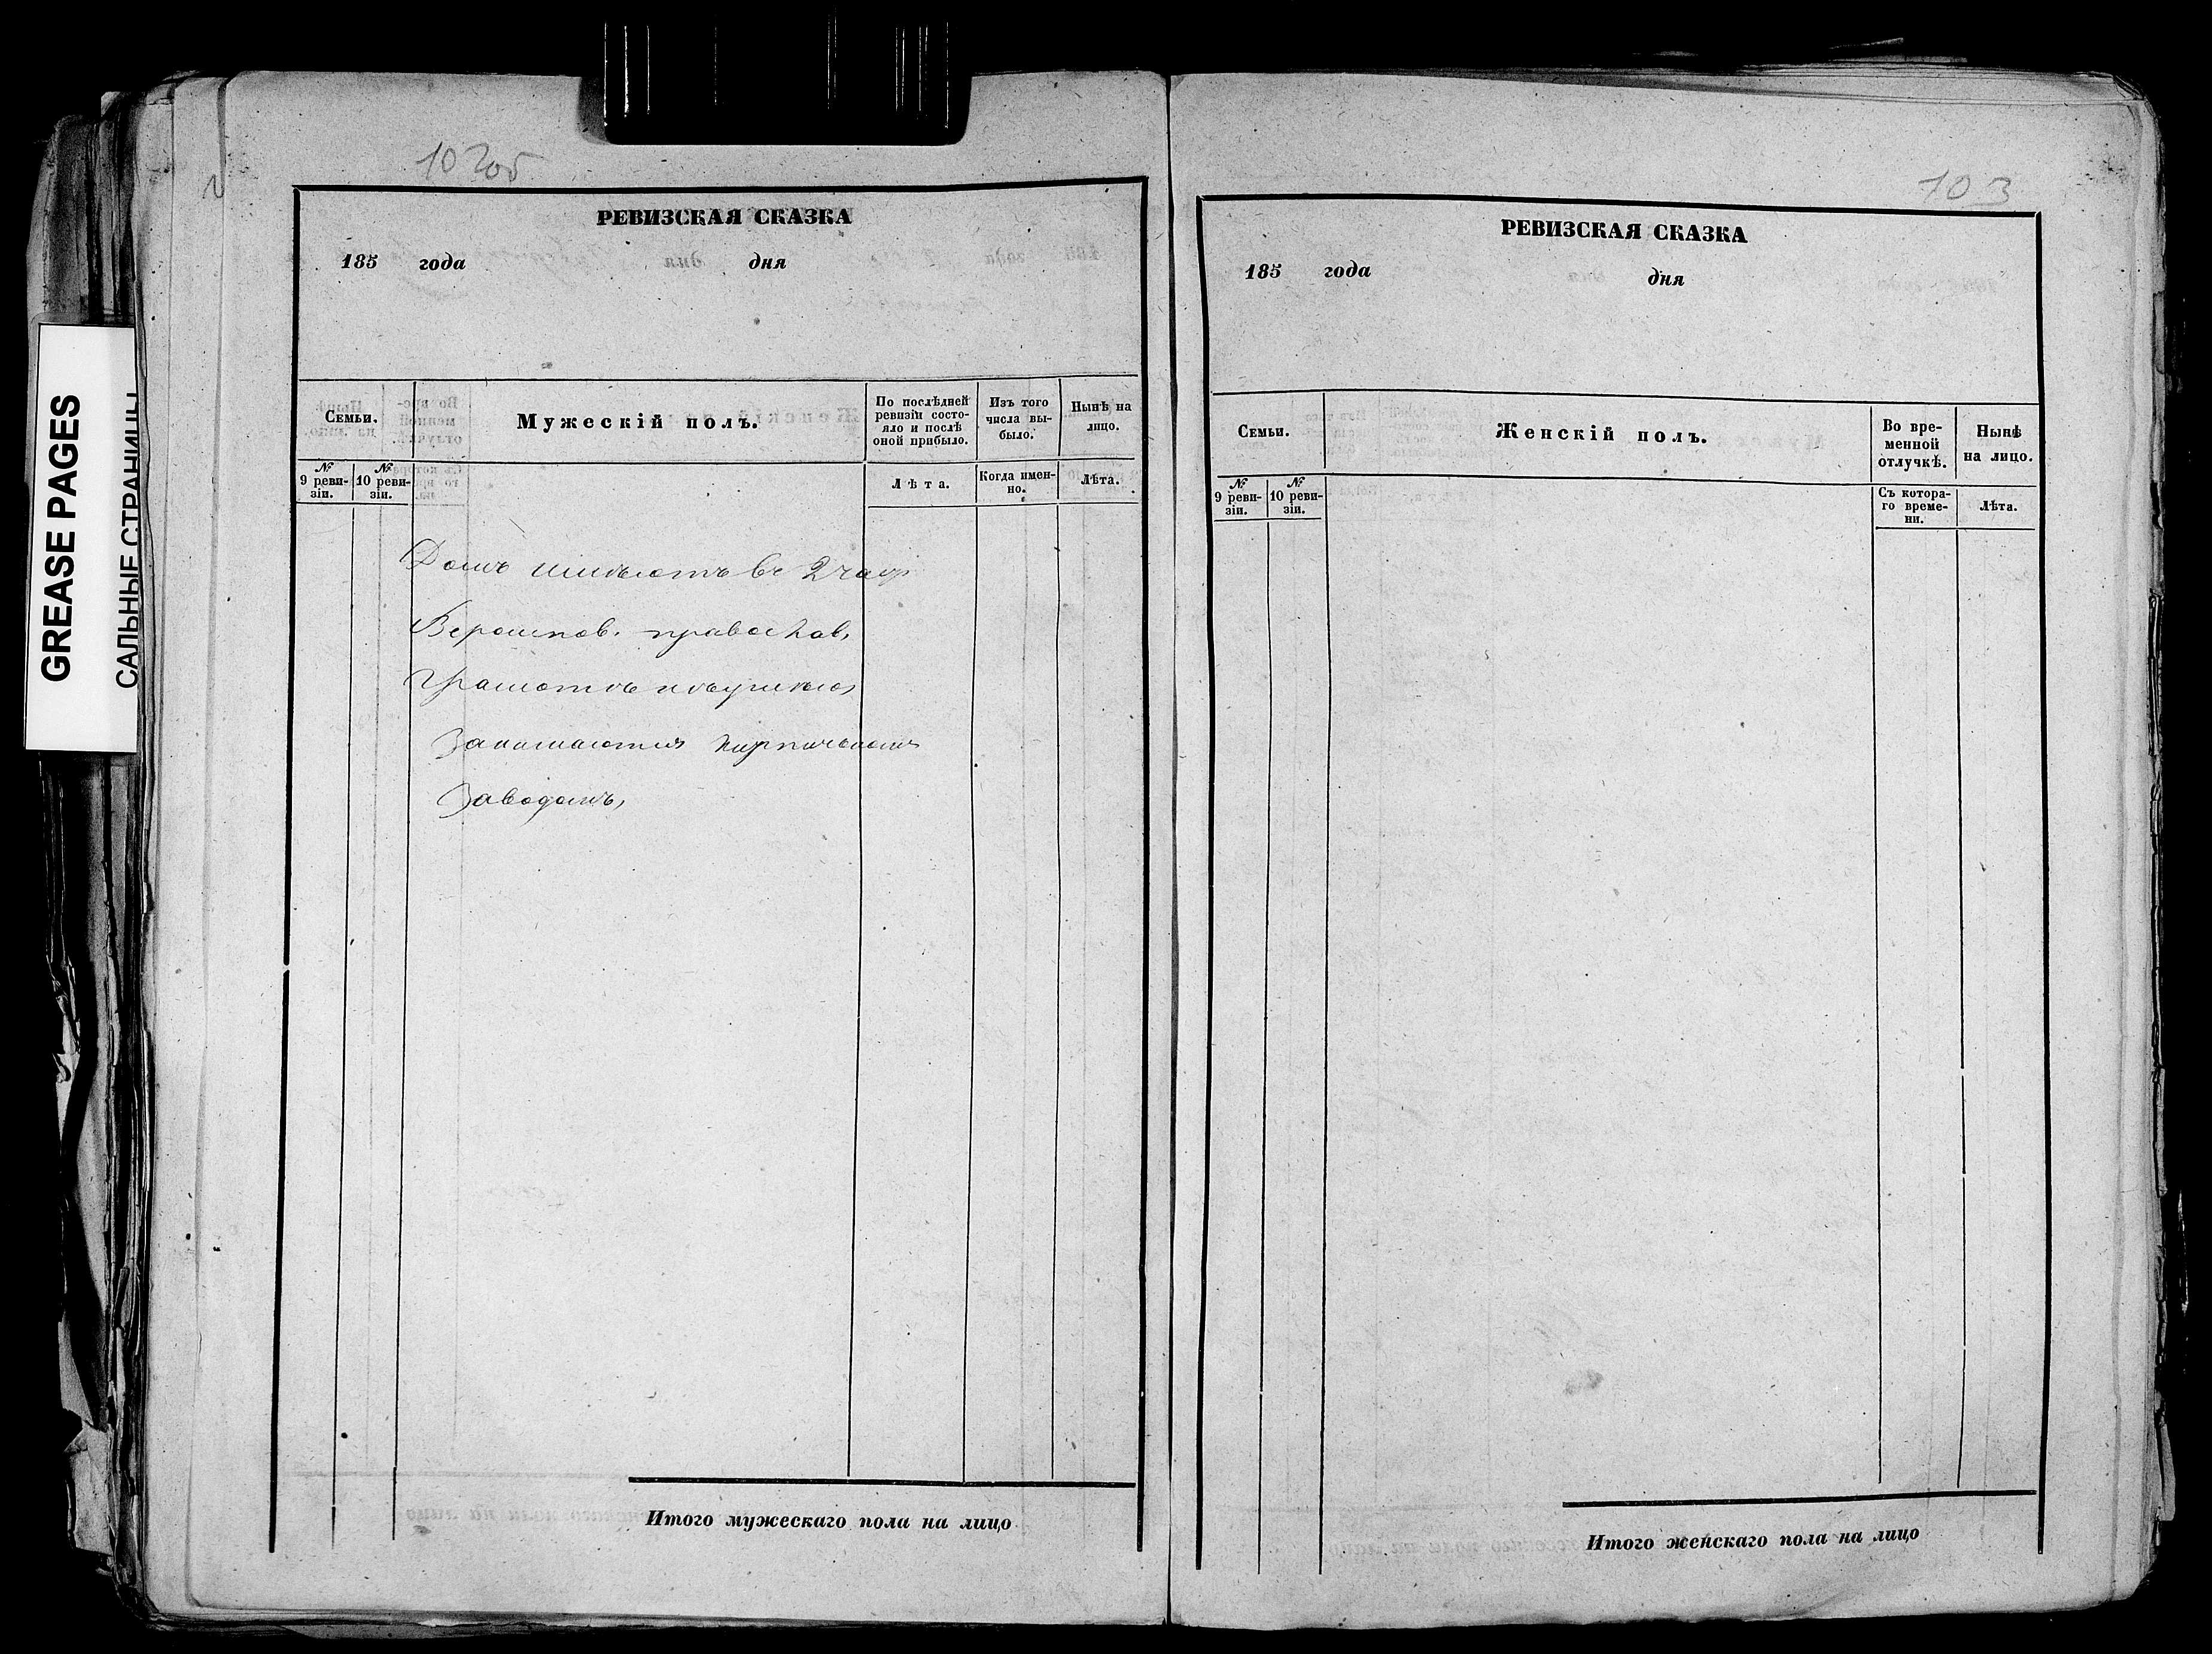 GREASE PAGES
САЛЬНЫЕ СТРАНИЦЫ
102об
РЕВИЗСКАЯ СКАЗКА
185 года дня
Семьи.
Мужескій полъ.
По послѣдней ревизіи состо-
яло и послѣ оной прибыло.
Изъ того числа вы-
было.
Нынѣ на лицо.
№ 9 реви-
зіи.
№ 10 реви-
зіи.
Лѣта.
Когда имен-
но.
Лѣта.
Домъ имѣютъ въ 2 час
Вероиспов. православ,
Грамотѣ
Занимаются кирпичнымъ
Заводомъ,
Итого мужескаго пола на лицо
103
РЕВИЗСКАЯ СКАЗКА
185 года дня
Семьи.
Женскій полъ.
Во вре-
менной
отлучкѣ.
Нынѣ
на лицо.
№ 9 реви-
зіи.
№ 10 реви-
зіи.
Съ котора-
го време-
ни.
Лѣта.
Итого женскаго пола на лицо